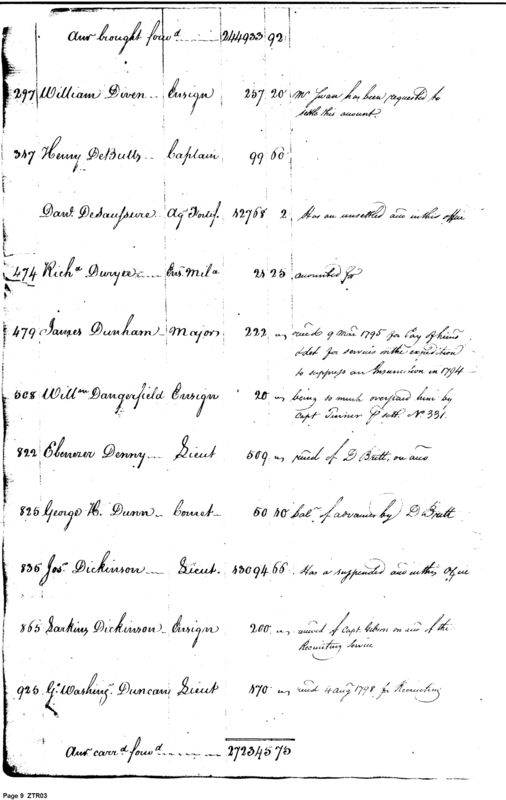 Amt brought forwd 244933 92
297 William Diven Ensign 257 20 Mr Swan has been requested to
settle this amount.
347 Henry DeButts Captain 99 60
Danl. Desaussure Ag Fortif. 12768 2 Has an unsettled acct in this office
474 Richd Dwyer Ens. Mila 25 25 accounted for
479 James Dunham Major 222 recd 9 Mar 1795 for Pay of himself
& det for services on the expedition
to suppress an Insurrection in 1794
508 Willm Dangerfield Ensign 20 being so much overpaid him by
Capt Turner p settt No 331.
822 Ebenezer Denny Lieut 509 recd of D Britt, on acct
825 George H. Dunn Cornet 50 10 bale of advances by D Britt
835 Jos. Dickinson Lieut. 13094 66 Has a suspended acct in this Office
865 Larkins Dickinson Ensign 200 received of Capt Gibson on acct of the
Recruiting Service
925 Go Washingn Duncan Lieut 170 recd 4 Aug 1798 for Recruiting
Amt carrd forwd 272345 75
Page 9 ZTR03